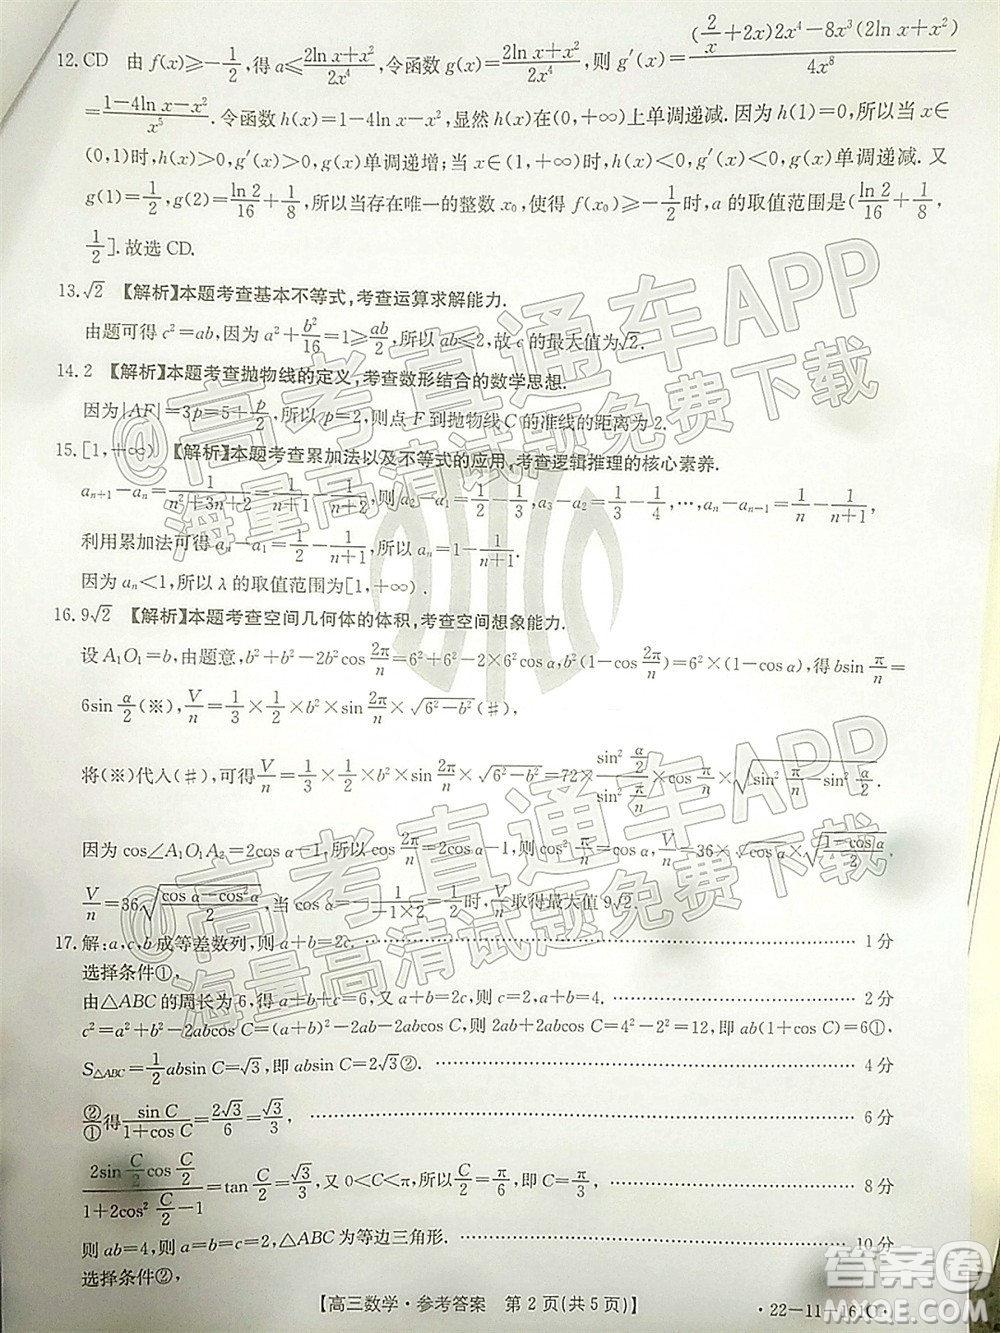 12. CD 由 f(x)≥-1/2, 得 a≤(2ln x+x²)/(2x⁴), 令函数 g(x)=(2ln x+x²)/(2x⁴), 则 g′(x)=((2/x+2x)2x⁴-8x³(2ln x+x²))/(4x⁸)
=(1-4ln x-x²)/x⁵. 令函数 h(x)=1-4ln x-x², 显然 h(x)在(0,+∞)上单调递减. 因为 h(1)=0, 所以当 x∈
(0,1)时, h(x)>0, g′(x)>0, g(x)单调递增; 当 x∈(1,+∞)时, h(x)<0, g′(x)<0, g(x)单调递减. 又
g(1)=1/2, g(2)=ln 2/16+1/8, 所以当存在唯一的整数 x₀, 使得 f(x₀)≥-1/2时, a 的取值范围是(ln 2/16+1/8,
1/2]. 故选 CD.
13. √2 【解析】本题考查基本不等式, 考查运算求解能力.
由题可得 c²=ab, 因为 a²+b²/16=1≥ab/2, 所以 ab≤2, 故 c 的最大值为√2.
14. 2 【解析】本题考查抛物线的定义, 考查数形结合的数学思想.
因为|AF|=3p=5+p/2, 所以 p=2, 则点 F 到抛物线 C 的准线的距离为 2.
15. [1,+∞) 【解析】本题考查累加法以及不等式的应用, 考查逻辑推理的核心素养.
aₙ₊₁-aₙ=1/(n²+3n+2)=1/(n+1)-1/(n+2), 则 a₂-a₁=1/2-1/3, a₃-a₂=1/3-1/4, …, aₙ-aₙ₋₁=1/n-1/(n+1),
利用累加法可得 aₙ-a₁=1/2-1/(n+1), 所以 aₙ=1-1/(n+1).
因为 aₙ<1, 所以 λ 的取值范围为[1,+∞).
16. 9√2 【解析】本题考查空间几何体的体积, 考查空间想象能力.
设 A₁O₁=b, 由题意, b²+b²-2b²cos 2π/n=6²+6²-2×6²cos α, b²(1-cos 2π/n)=6²×(1-cos α), 得 bsin π/n=
6sin α/2(※), V/n=1/3×1/2×b²×sin 2π/n×√(6²-b²)(#),
将(※)代入(#), 可得 V/n=1/3×1/2×b²×sin 2π/n×√(6²-b²)=72×(sin² α/2)/(sin² π/n)×cos π/n×√(sin² π/n-sin² α/2).
因为 cos∠A₁O₁A₂=2cos α-1, 所以 cos 2π/n=2cos α-1, 则 cos α=cos² π/n, V/n=36×√cos α×√((1-cos α)/2).
V/n=36√((cos α-cos²α)/2), 当 cos α=-1/(-1×2)=1/2时, V/n取得最大值 9√2.
17. 解: a,c,b 成等差数列, 则 a+b=2c. …… 1 分
选择条件①,
由△ABC 的周长为 6, 得 a+b+c=6, 又 a+b=2c, 则 c=2, a+b=4. …… 2 分
c²=a²+b²-2abcos C=(a+b)²-2ab-2abcos C, 所以 2ab+2abcos C=4²-2²=12, 即 ab(1+cos C)=6①,
S△ABC=1/2absin C=√3, 即 absin C=2√3②. …… 4 分
②/①得 sin C/(1+cos C)=2√3/6=√3/3, …… 6 分
(2sin C/2 cos C/2)/(1+2cos² C/2-1)=tan C/2=√3/3, 又 0<C<π, 所以 C/2=π/6, 即 C=π/3, …… 8 分
则 ab=4, 所以 a=b=c=2, △ABC 为等边三角形. …… 10 分
选择条件②,
【高三数学·参考答案 第 2 页(共 5 页)】
·22-11-161C·
@高考直通车APP
海量高清试题免费下载
@高考直通车APP
海量高清试题免费下载
答案圈
MXQE.COM